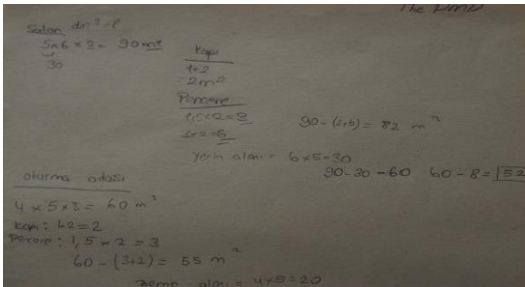 The
Salon
5x6 x3 = 90 m²
30
Kapı
1x2
= 2m²
Pencere
1,5x2=3
3x2=6
90-(2+6) = 82 m²
Yerin alanı = 6x5=30
90-30=60 60-8=52
oturma odası
4 x 5 x 3 = 60 m²
Kapı : 1.2=2
Pencere : 1,5 x 2 = 3
60 - (3+2) = 55 m²
Zemin alanı = 4x5=20